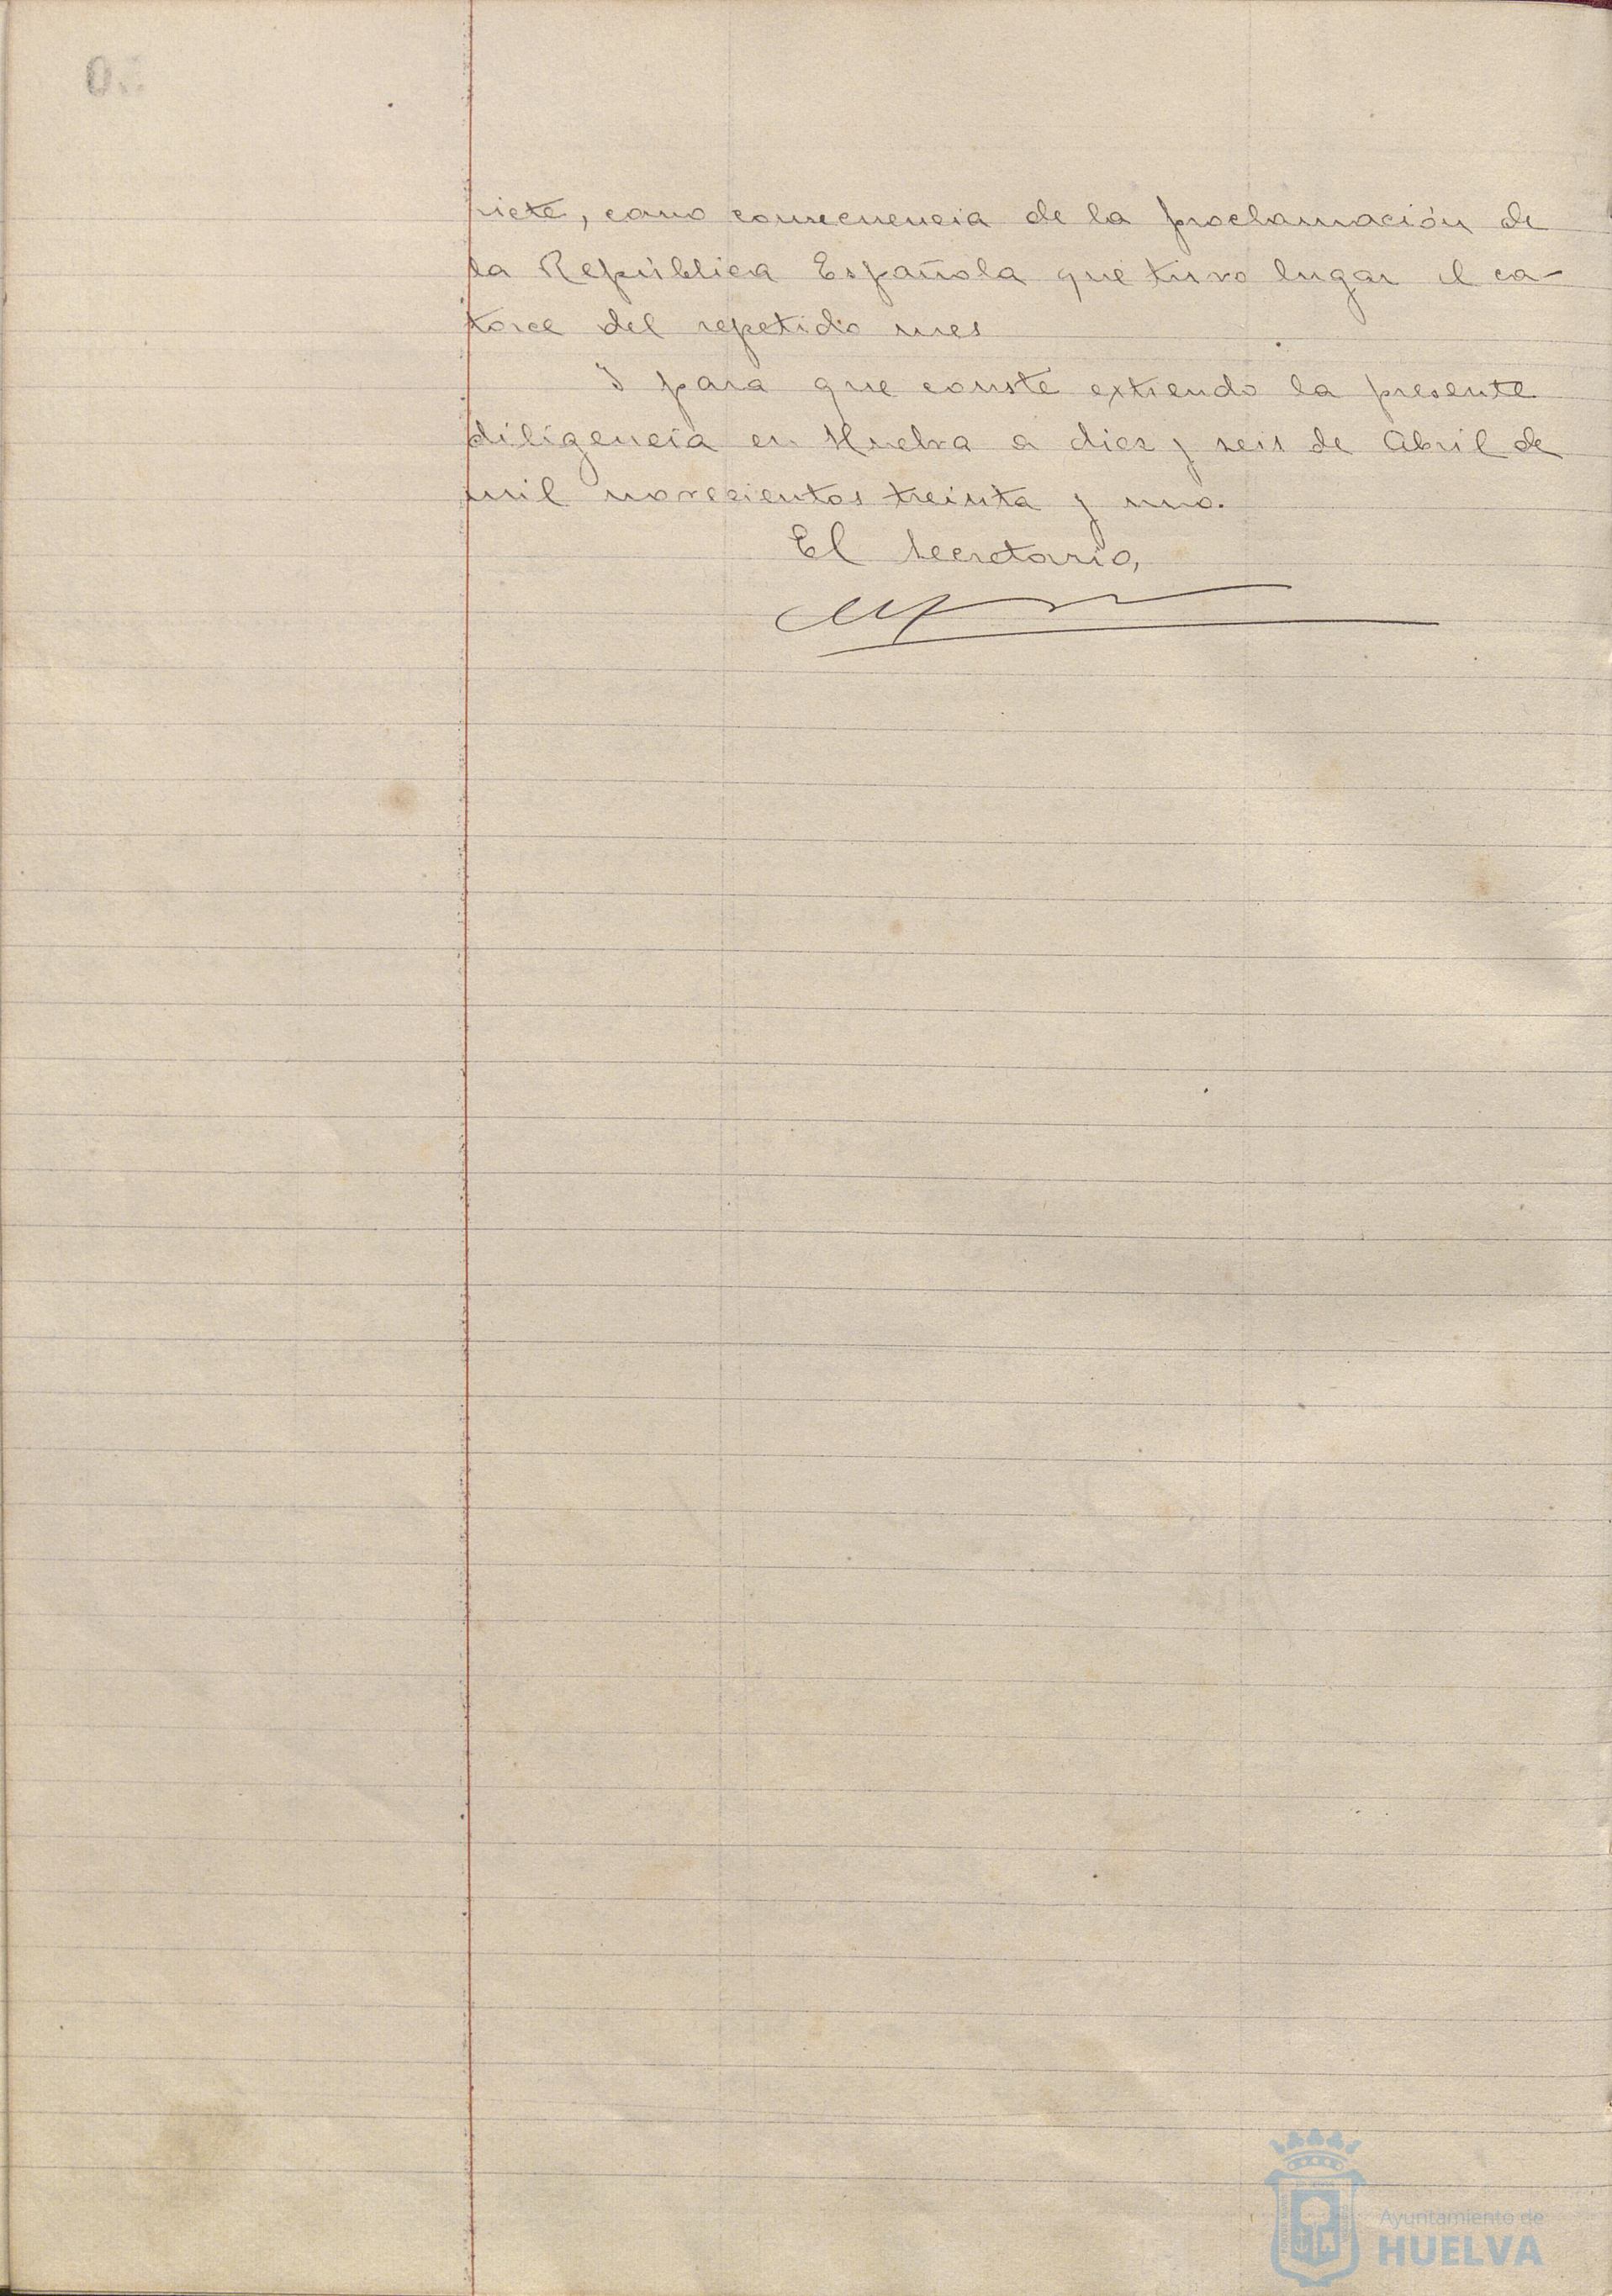 siete, como consecuencia de la proclamación de
la República Española que tuvo lugar el ca-
torce del repetido mes
Y para que conste extiendo la presente
diligencia en Huelva a diez y seis de Abril de
mil novecientos treinta y uno.
El Secretario,
Ayuntamiento de
HUELVA